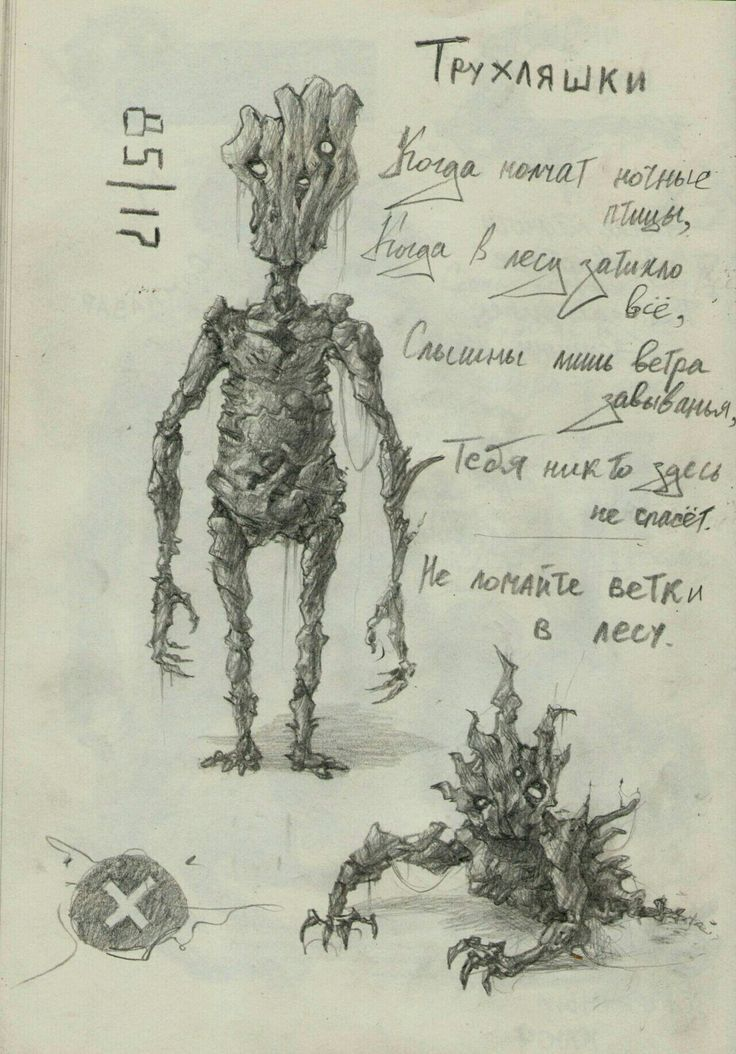 Трухляшки
85/17
Когда молчат ночные
птицы,
Когда в лесу затихло
всё,
Слышны лишь ветра
завыванья,
Тебя никто здесь
не спасёт.
Не ломайте ветки
в лесу.